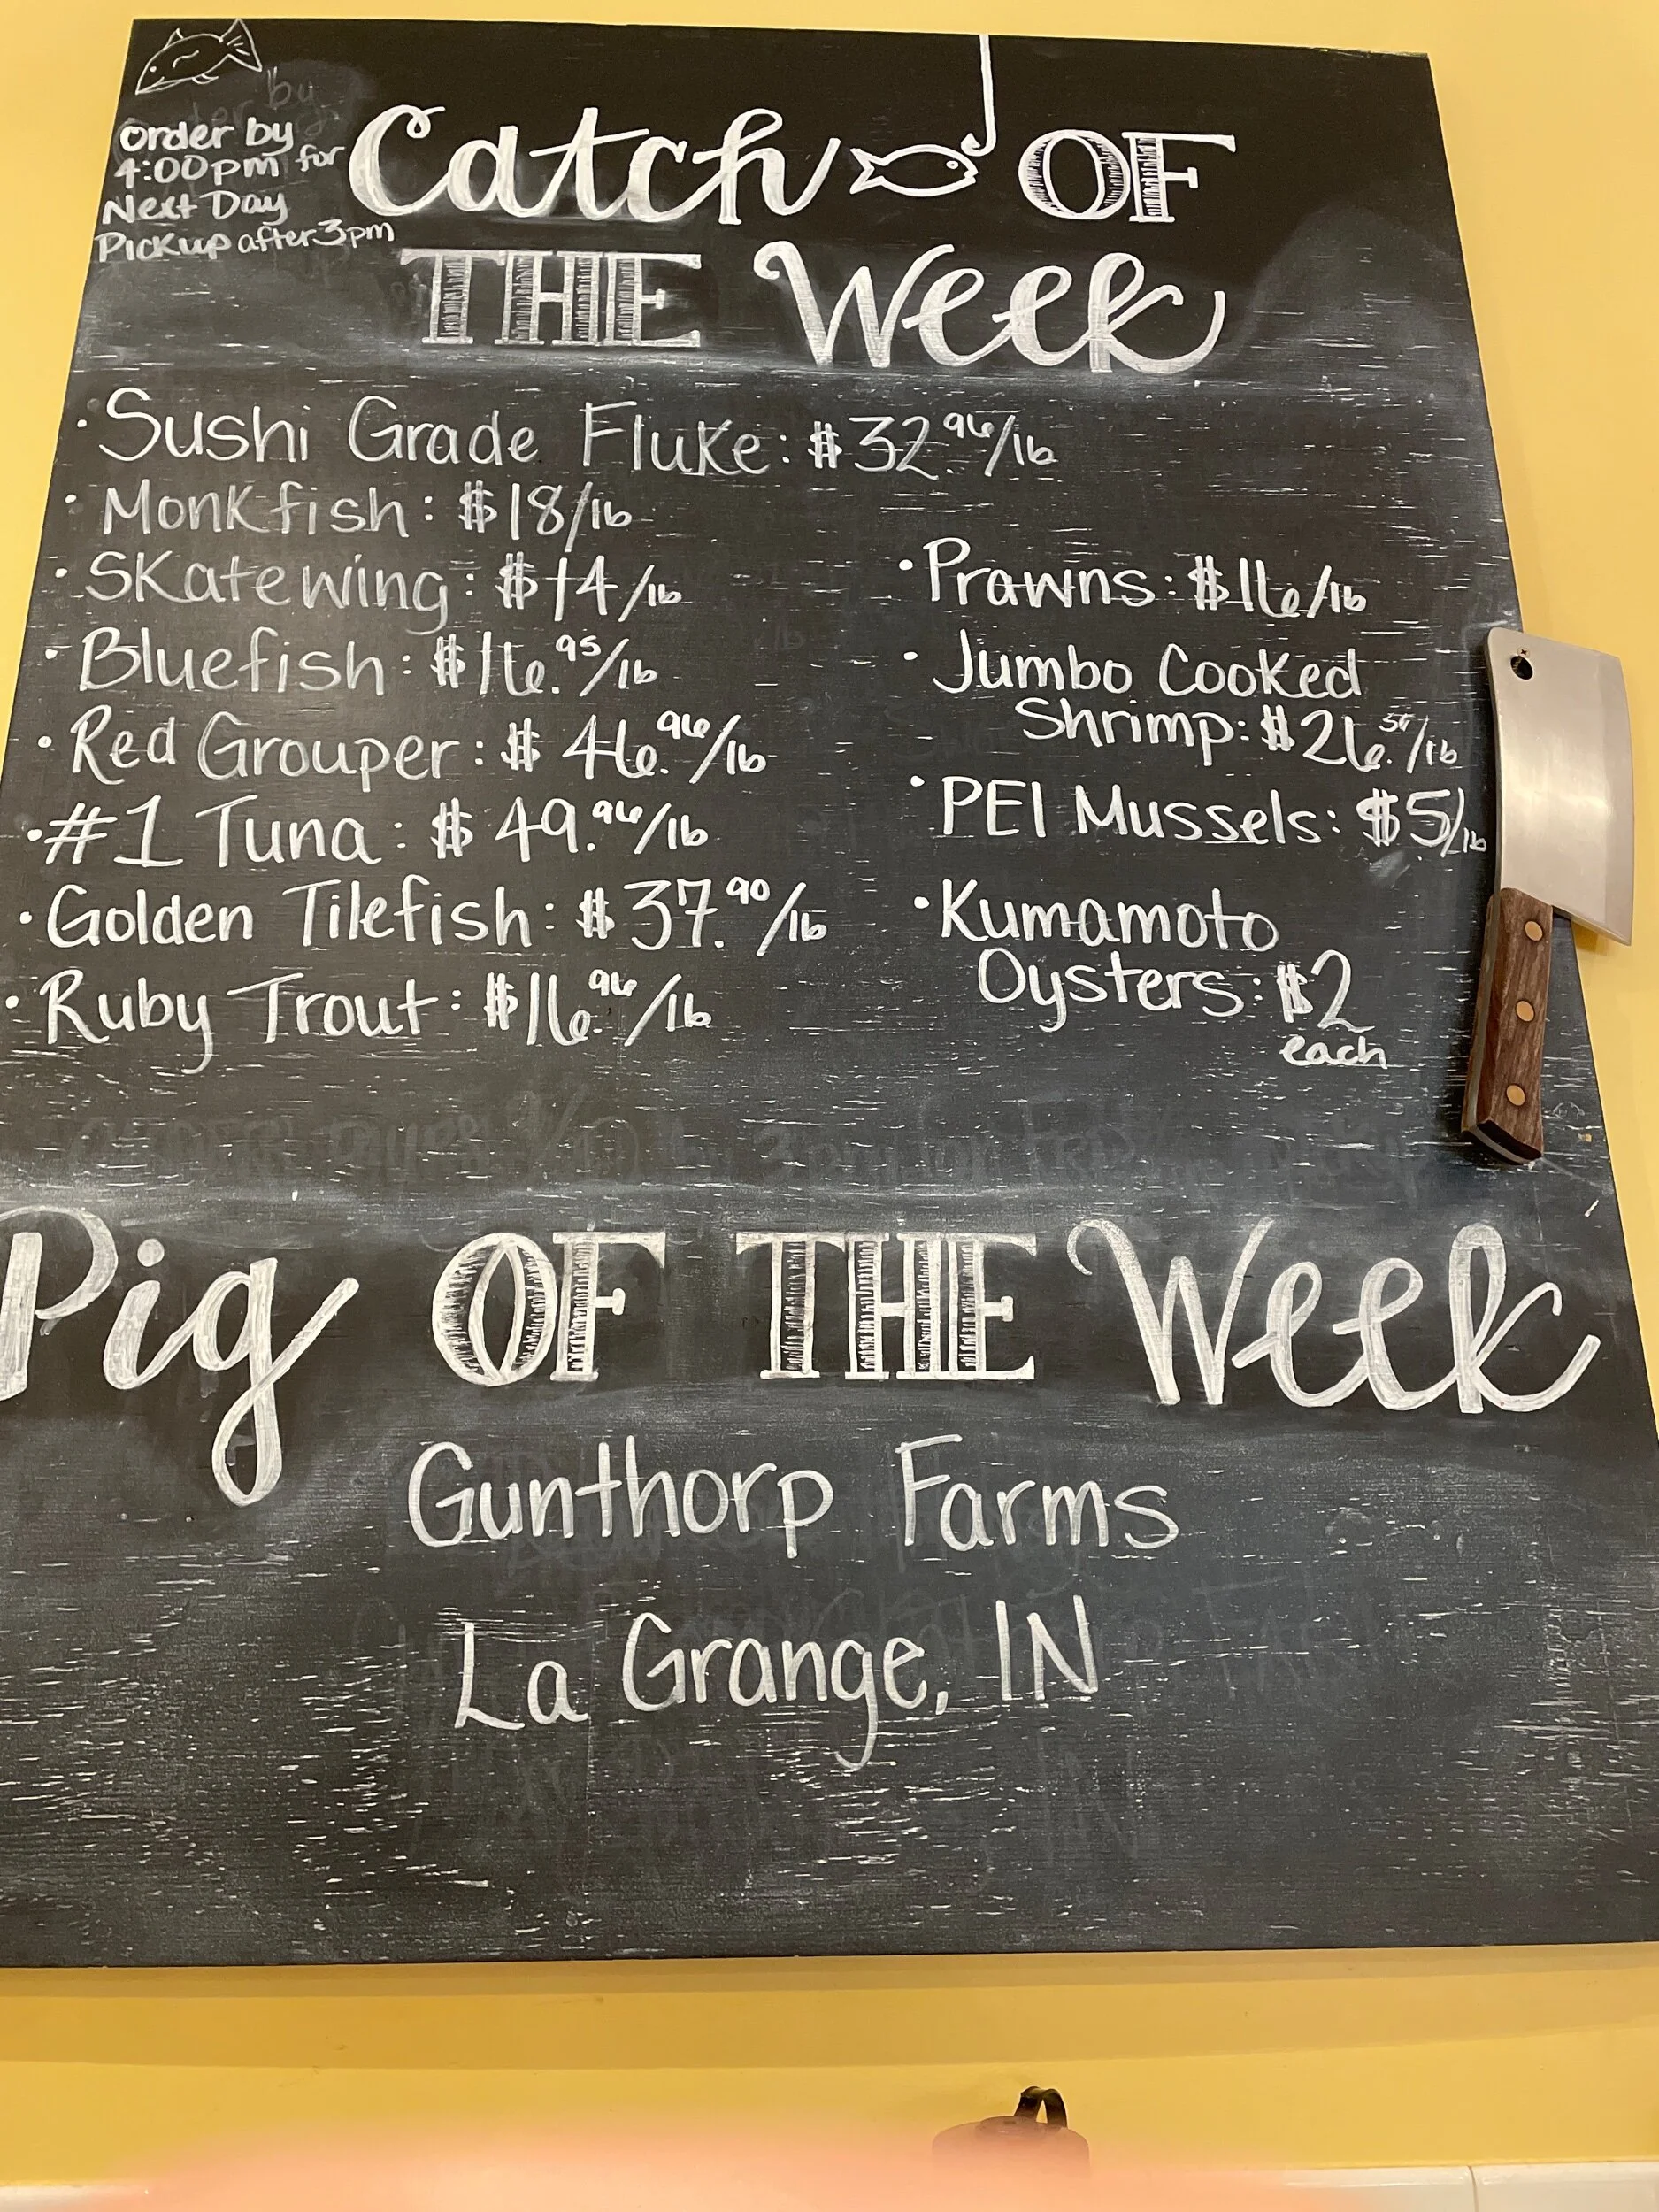 Order by
4:00pm for
Next Day
Pickup after 3pm
Catch OF
THE Week
• Sushi Grade Fluke: $32.96/lb
• Monkfish: $18/lb
• Skatewing: $14/lb
• Bluefish: $16.95/lb
• Red Grouper: $46.96/lb
• #1 Tuna: $49.96/lb
• Golden Tilefish: $37.90/lb
• Ruby Trout: $16.96/lb
• Prawns: $16/lb
• Jumbo Cooked
Shrimp: $26./lb
• PEI Mussels: $5/lb
• Kumamoto
Oysters: $2
each
Pig OF THE Week
Gunthorp Farms
La Grange, IN